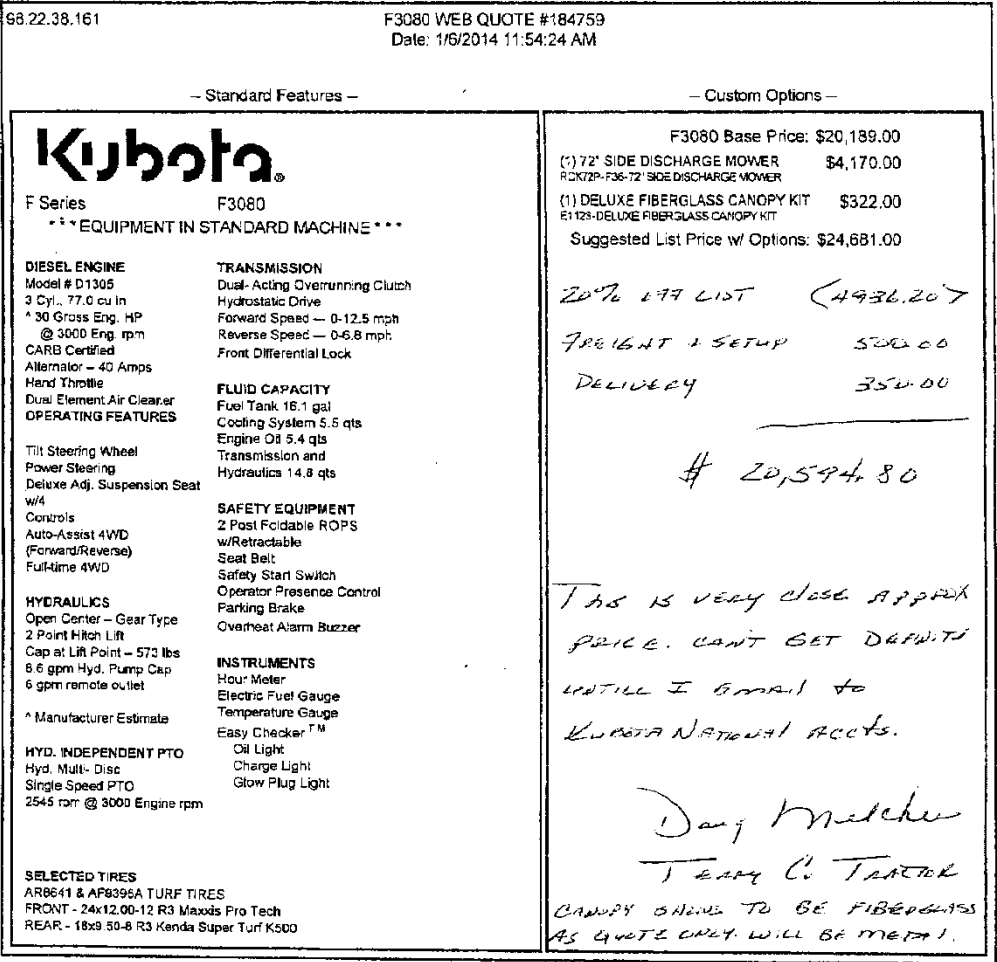 98.22.38.161
F3080 WEB QUOTE #184759
Date: 1/6/2014 11:54:24 AM
-- Standard Features --
Kubota®
F Series F3080
***EQUIPMENT IN STANDARD MACHINE***
DIESEL ENGINE
Model # D1305
3 Cyl., 77.0 cu in
^ 30 Gross Eng. HP
@ 3000 Eng. rpm
CARB Certified
Alternator – 40 Amps
Hand Throttle
Dual Element Air Cleaner
OPERATING FEATURES
Tilt Steering Wheel
Power Steering
Deluxe Adj. Suspension Seat
w/4
Controls
Auto-Assist 4WD
(Forward/Reverse)
Full-time 4WD
HYDRAULICS
Open Center – Gear Type
2 Point Hitch Lift
Cap at Lift Point – 573 lbs
8.6 gpm Hyd. Pump Cap
6 gpm remote outlet
^ Manufacturer Estimate
HYD. INDEPENDENT PTO
Hyd. Multi- Disc
Single Speed PTO
2545 rpm @ 3000 Engine rpm
TRANSMISSION
Dual- Acting Overrunning Clutch
Hydrostatic Drive
Forward Speed — 0-12.5 mph
Reverse Speed — 0-6.8 mph
Front Differential Lock
FLUID CAPACITY
Fuel Tank 16.1 gal
Cooling System 5.5 qts
Engine Oil 5.4 qts
Transmission and
Hydraulics 14.8 qts
SAFETY EQUIPMENT
2 Post Foldable ROPS
w/Retractable
Seat Belt
Safety Start Switch
Operator Presence Control
Parking Brake
Overheat Alarm Buzzer
INSTRUMENTS
Hour Meter
Electric Fuel Gauge
Temperature Gauge
Easy Checker™
Oil Light
Charge Light
Glow Plug Light
SELECTED TIRES
AR8641 & AF8395A TURF TIRES
FRONT - 24x12.00-12 R3 Maxxis Pro Tech
REAR - 18x9.50-8 R3 Kenda Super Turf K500
-- Custom Options --
F3080 Base Price: $20,189.00
(1) 72" SIDE DISCHARGE MOWER $4,170.00
RCK72P-F36-72" SIDE DISCHARGE MOWER
(1) DELUXE FIBERGLASS CANOPY KIT $322.00
E1123-DELUXE FIBERGLASS CANOPY KIT
Suggested List Price w/ Options: $24,681.00
20% off LIST (4936.20)
FREIGHT & SETUP 500.00
DELIVERY 350.00
# 20,594.80
This is VERY close APPROX
PRICE. CANT GET DEFINITE
UNTILL I EMAIL to
KUBOTA NATIONAL ACCTS.
Doug Melcher
TERRY C. TRACTOR
CANOPY TO BE FIBERGLASS
AS QUOTE ONLY. WILL BE METAL.